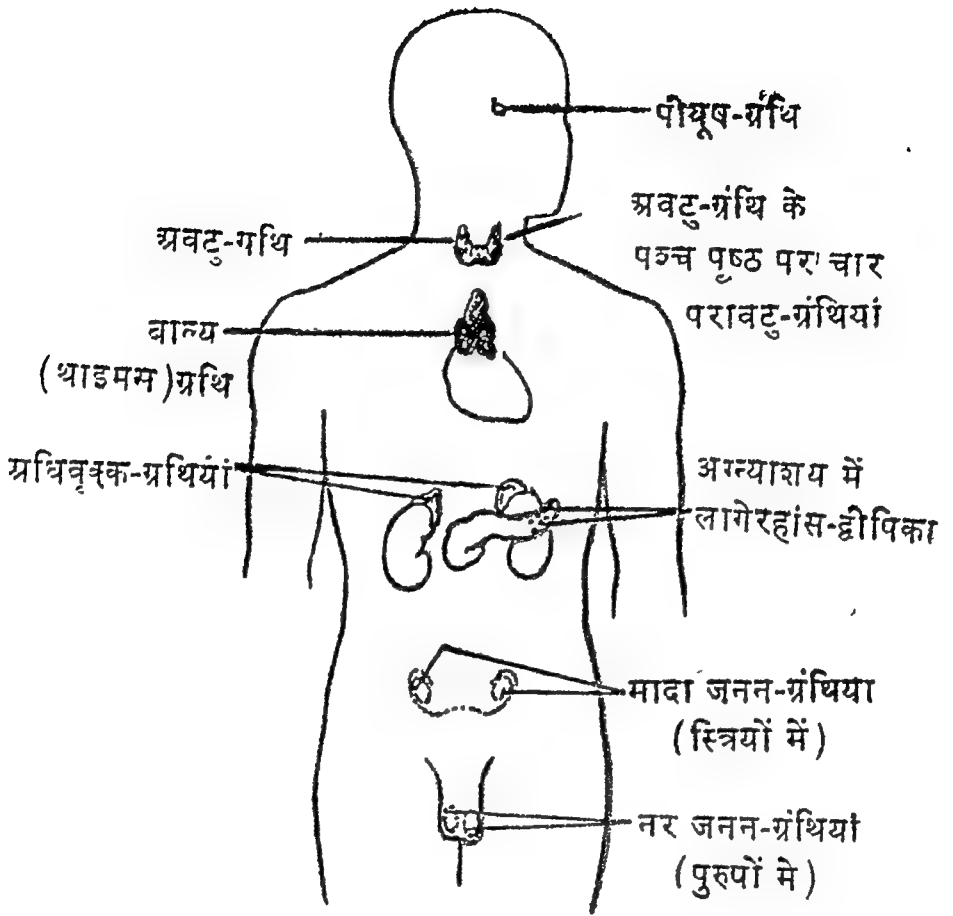 पीयूष-ग्रंथि
अवटु-ग्रंथि के
पञ्च पृष्ठ पर चार
परावटु-ग्रंथियां
अवटु-गथि
वाल्य
(थाइमस)ग्रथि
अधिवृक्क-ग्रथियां
अग्न्याशय में
लागेरहांस-द्वीपिका
मादा जनन-ग्रंथिया
(स्त्रियों में)
नर जनन-ग्रंथियां
(पुरुपों मे)